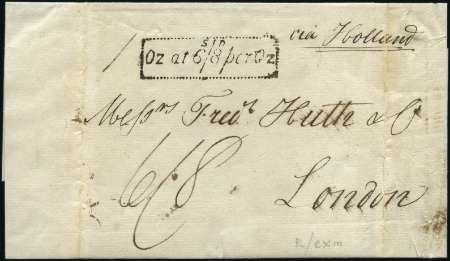 via Holland
1
S/D
Oz at 6/8 per Oz
Messrs Fredk Huth & Co
6/8
London
R/exm